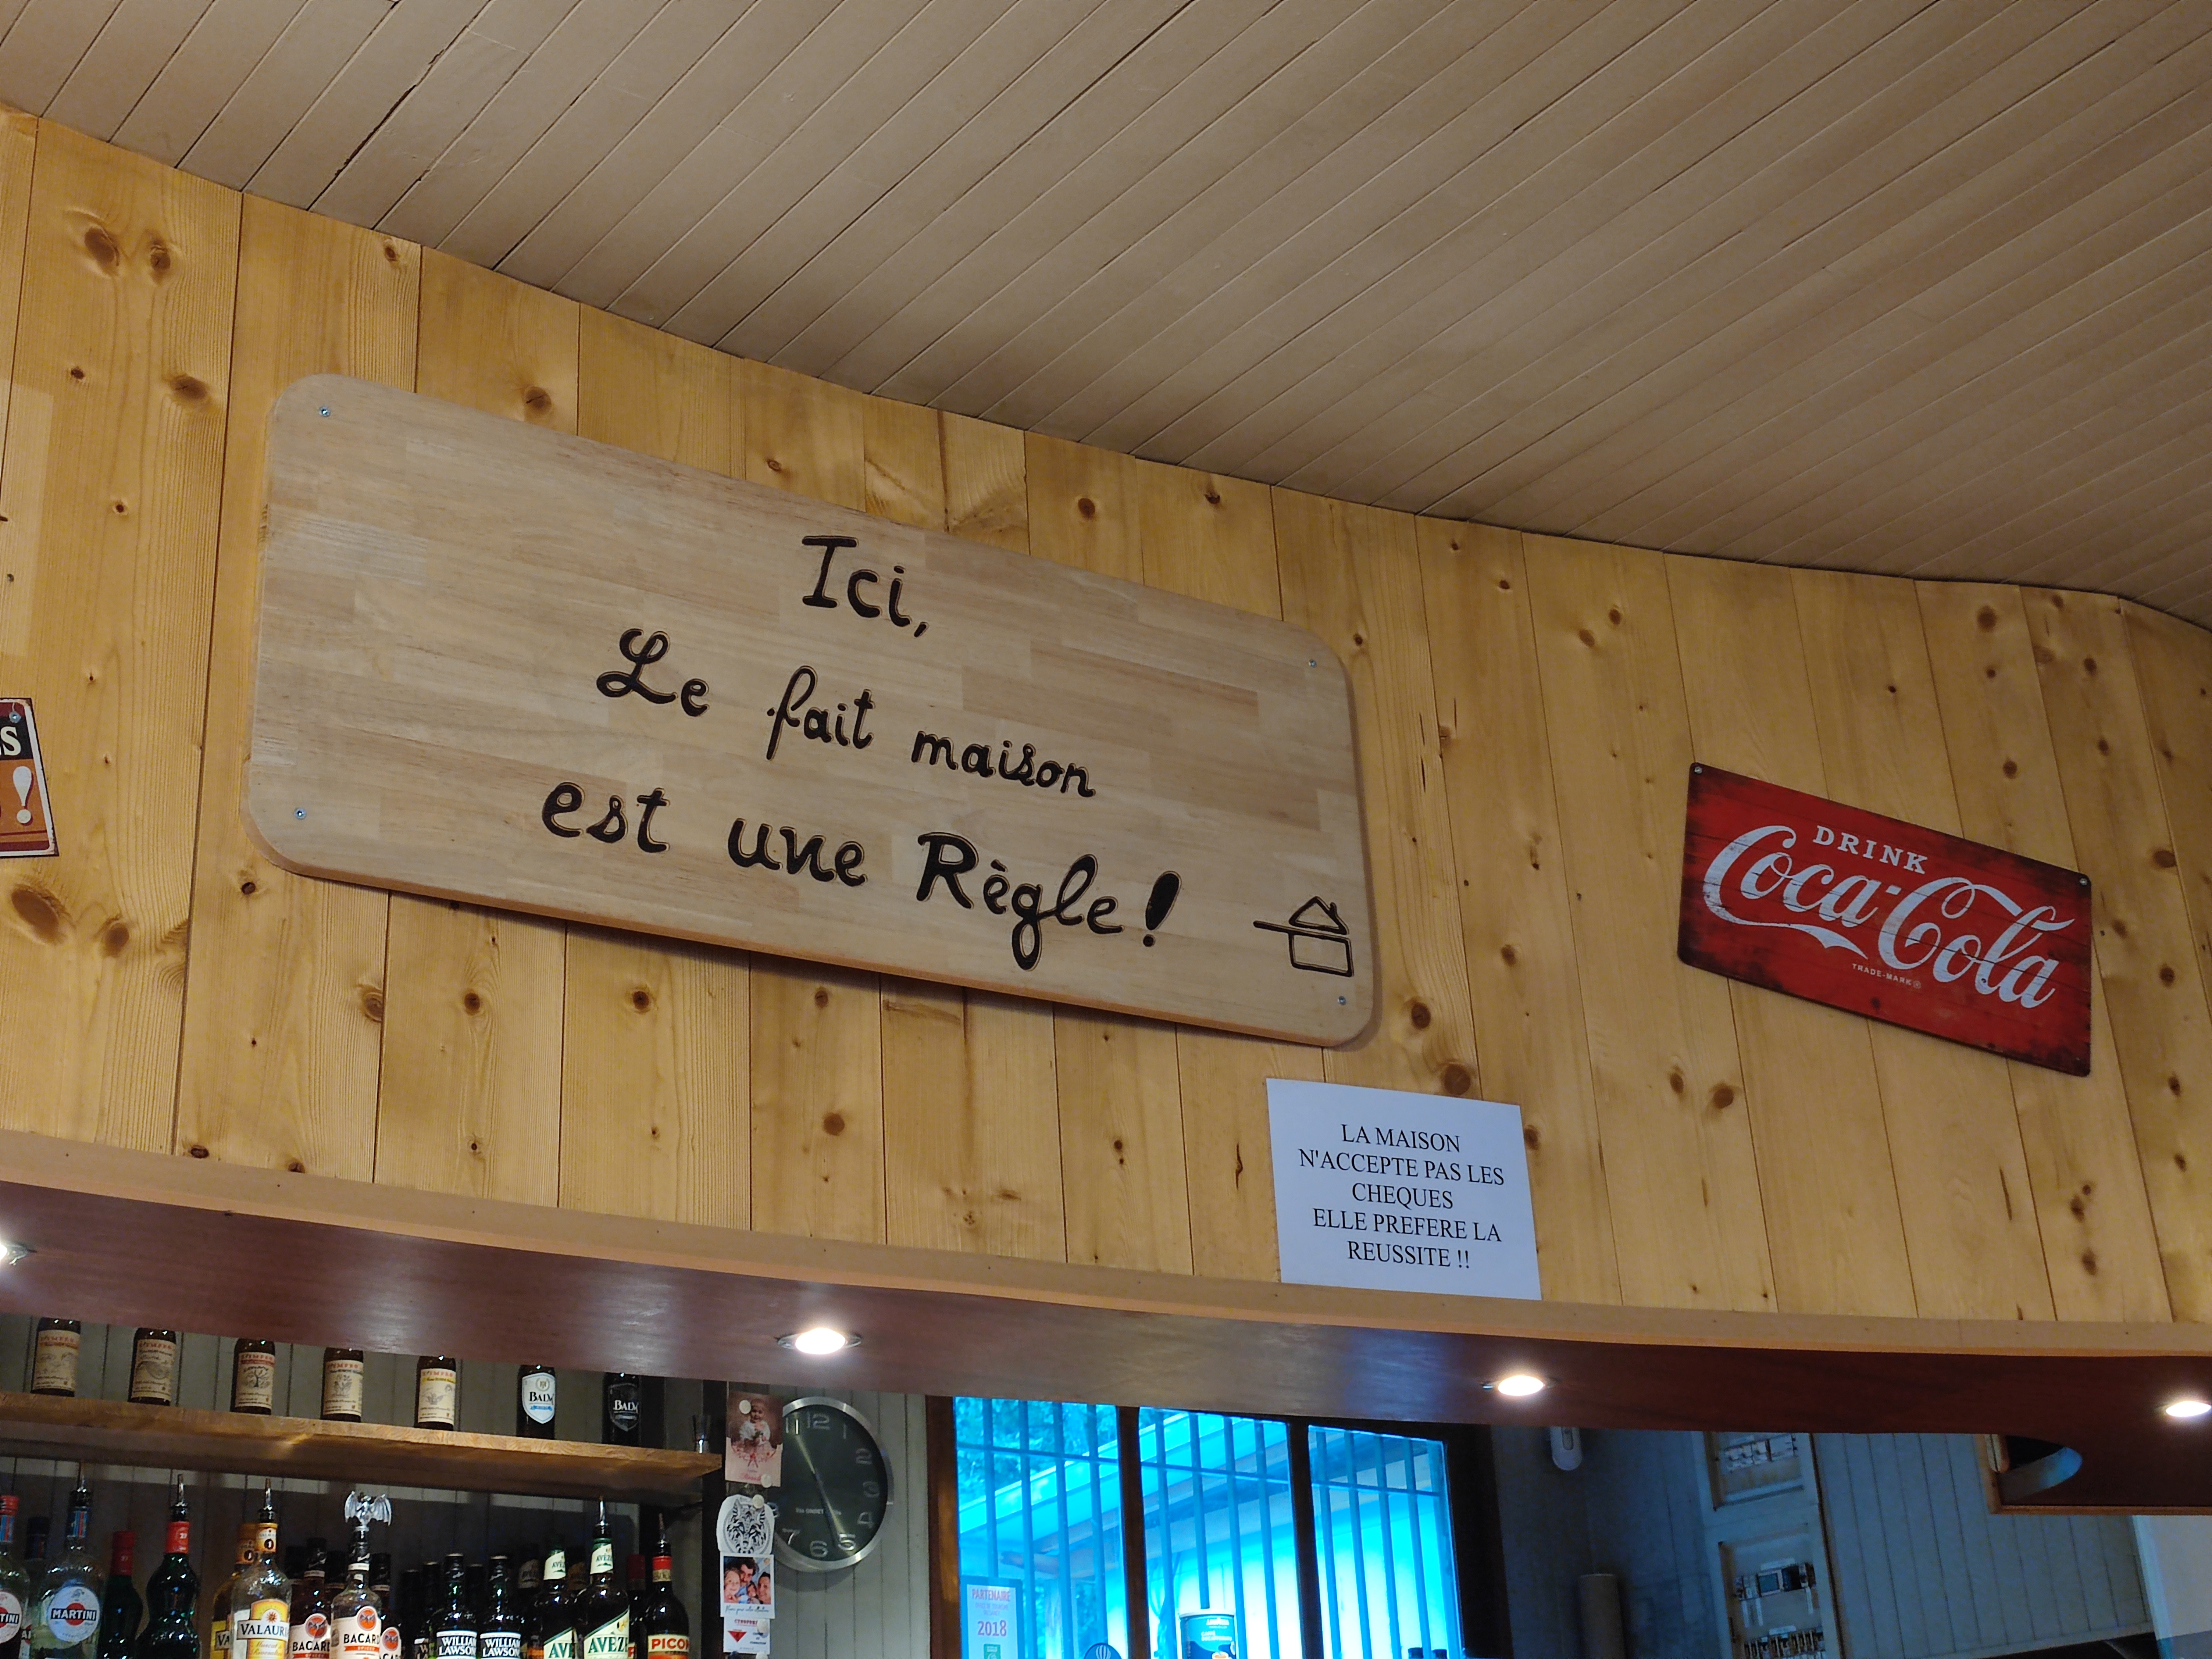 Ici,
Le fait maison
est une Règle !
DRINK
Coca-Cola
TRADE-MARK ®
LA MAISON
N'ACCEPTE PAS LES
CHEQUES
ELLE PREFERE LA
REUSSITE !!
S
!
BALM
BALM
12
1
2
3
4
5
6
7
MARTINI
VALAURIE
BACARDI
BACARDI
WILLIAM
LAWSON
WILLIAM
LAWSON
AVÈZE
PICON
PARTENAIRE
2018